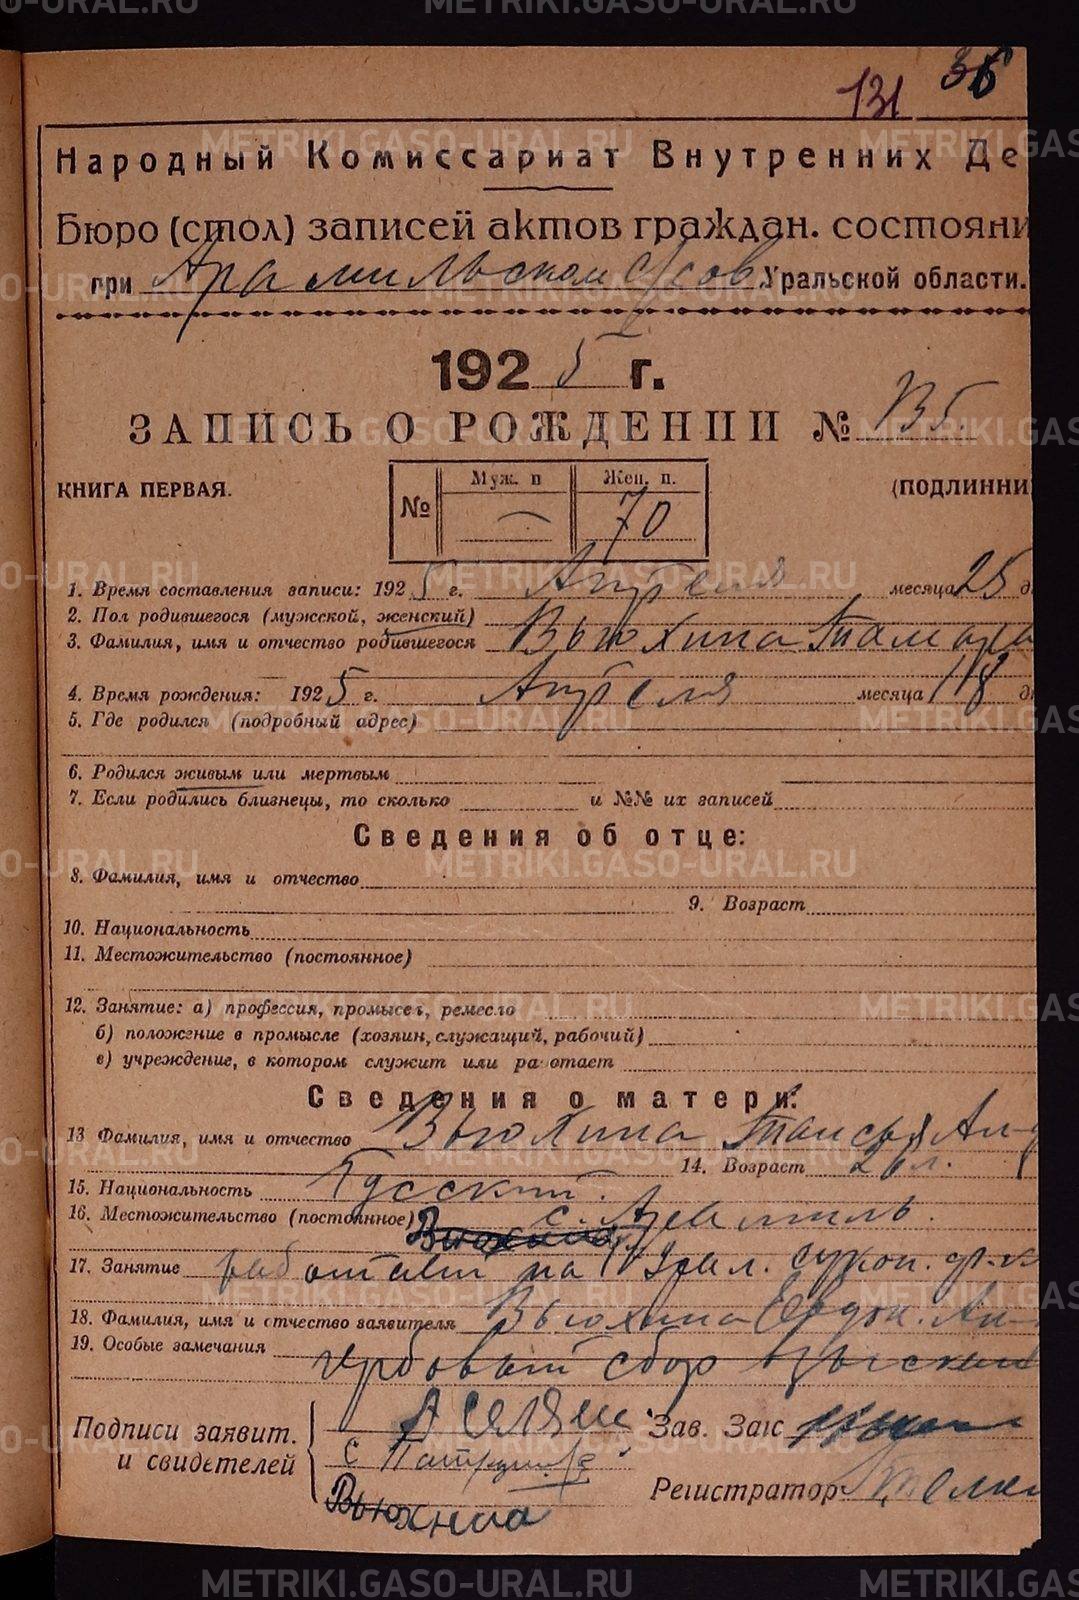 131 36
Народный Комиссариат Внутренних Де
Бюро (стол) записей актов граждан. состояни
при Арамильском Уральской области.
1925 г.
ЗАПИСЬ О РОЖДЕНИИ №
КНИГА ПЕРВАЯ.
(ПОДЛИННИ
№ Муж. п — Жен. п. 70
1. Время составления записи: 1925 г. Апреля месяца 25 д
2. Пол родившегося (мужской, женский)
3. Фамилия, имя и отчество родившегося Вьюхина Тамара
4. Время рождения: 1925 г. Апреля месяца 18 д
5. Где родился (подробный адрес)
6. Родился живым или мертвым
7. Если родились близнецы, то сколько и №№ их записей
Сведения об отце:
8. Фамилия, имя и отчество
9. Возраст
10. Национальность
11. Местожительство (постоянное)
12. Занятие: а) профессия, промысел, ремесло
б) положение в промысле (хозяин, служащий, рабочий)
в) учреждение, в котором служит или работает
Сведения о матери:
13 Фамилия, имя и отчество Вьюхина Таисья Ан-д
14. Возраст 26 л.
15. Национальность Русский.
16. Местожительство (постоянное) с. Арамиль.
Вьюхина
17. Занятие работает на Урал. сукон. ф-к
18. Фамилия, имя и отчество заявителя Вьюхина Евдок. Ан-
19. Особые замечания гербовый сбор взыскан
Подписи заявит. и свидетелей
Зав. Загс
С
Регистратор
Вьюхниа
METRIKI.GASO-URAL.RU